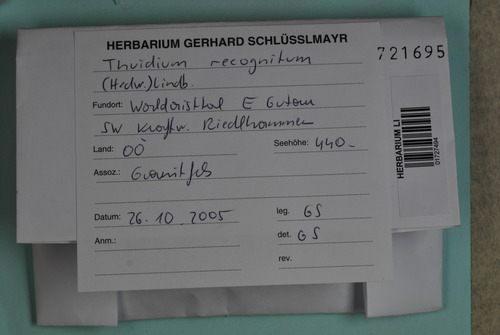 HERBARIUM GERHARD SCHLÜSSLMAYR
Thuidium recognitum
(Hedw.) Lindb.
Fundort: Waldaisthal E Gutau
SW Kraftw. Riedlhammer
Land: OÖ Seehöhe: 440-
Assoz.: Granitfels
Datum: 26.10.2005 leg. GS
Anm.: det. GS
rev.
721695
HERBARIUM LI
01727494